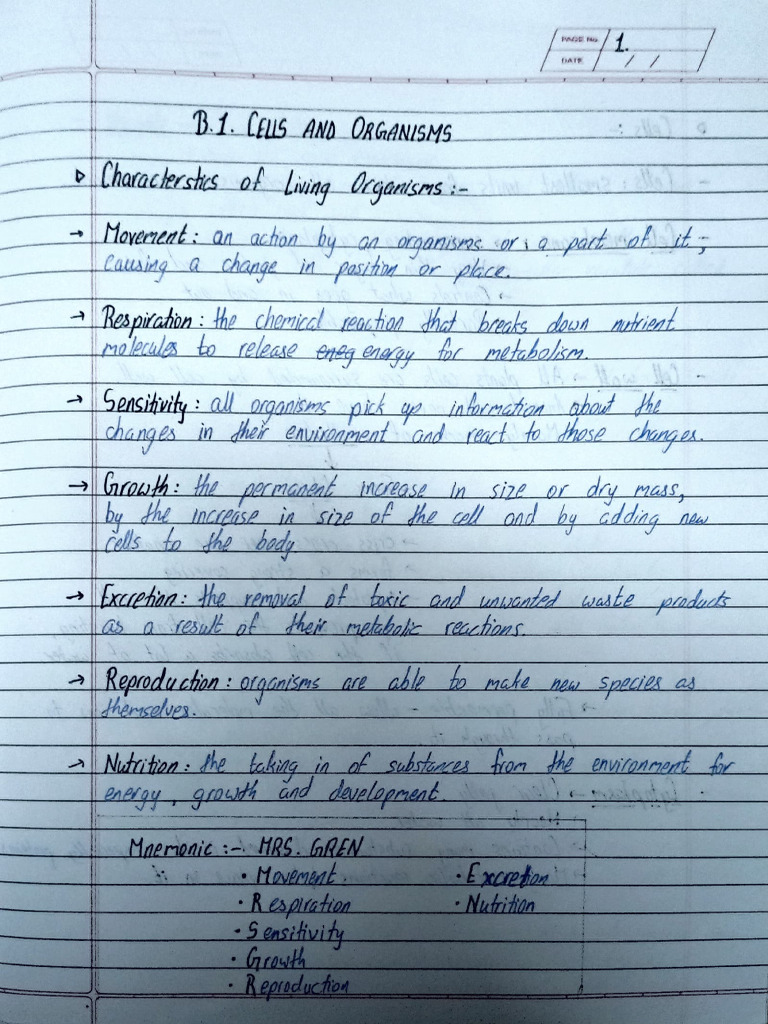 PAGE No. 1.
DATE / /
B.1. CELLS AND ORGANISMS
Characterstics of Living Organisms :-
→ Movement : an action by an organisms or a part of it,
causing a change in position or place.
→ Respiration : the chemical reaction that breaks down nutrient
molecules to release eneg energy for metabolism.
→ Sensitivity : all organisms pick up information about the
changes in their environment and react to those changes.
→ Growth : the permanent increase in size or dry mass,
by the increase in size of the cell and by adding new
cells to the body
→ Excretion : the removal of toxic and unwanted waste products
as a result of their metabolic reactions.
→ Reproduction : organisms are able to make new species as
themselves.
→ Nutrition : the taking in of substances from the environment for
energy, growth and development.
Mnemonic :- MRS. GREN
• Movement • Excretion
• Respiration • Nutrition
• Sensitivity
• Growth
• Reproduction